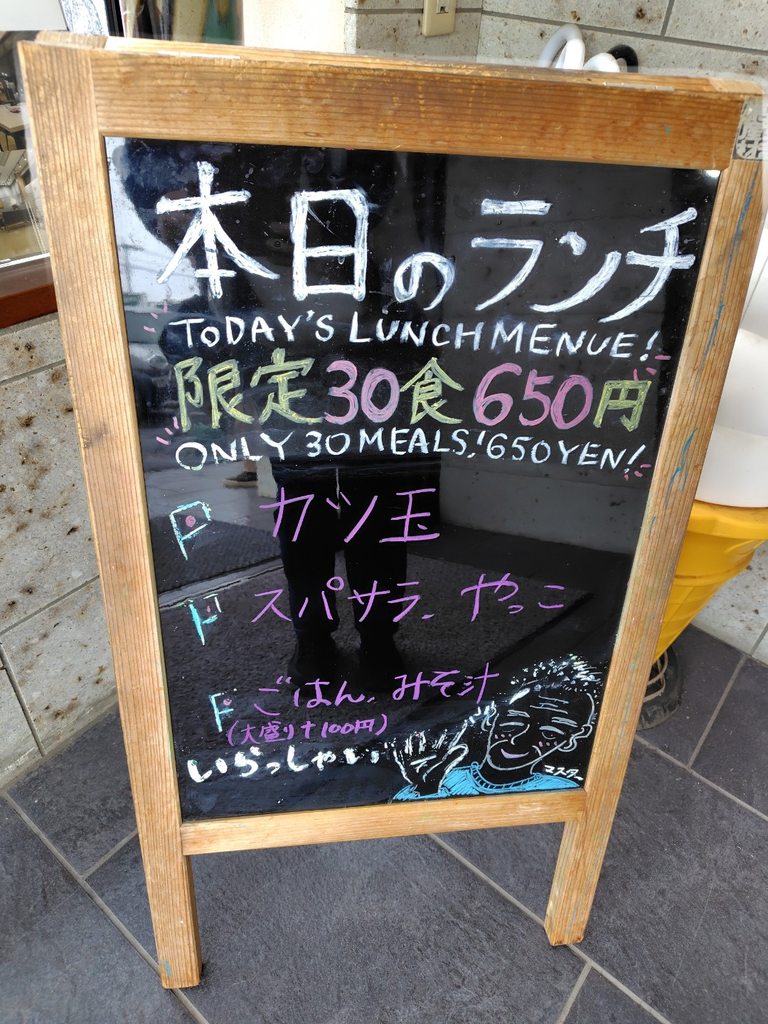 本日のランチ
TODAY'S LUNCH MENUE!
限定30食650円
ONLY 30 MEALS! 650YEN!
カツ玉
スパサラ、やっこ
ごはん、みそ汁
(大盛り+100円)
いらっしゃい
マスター